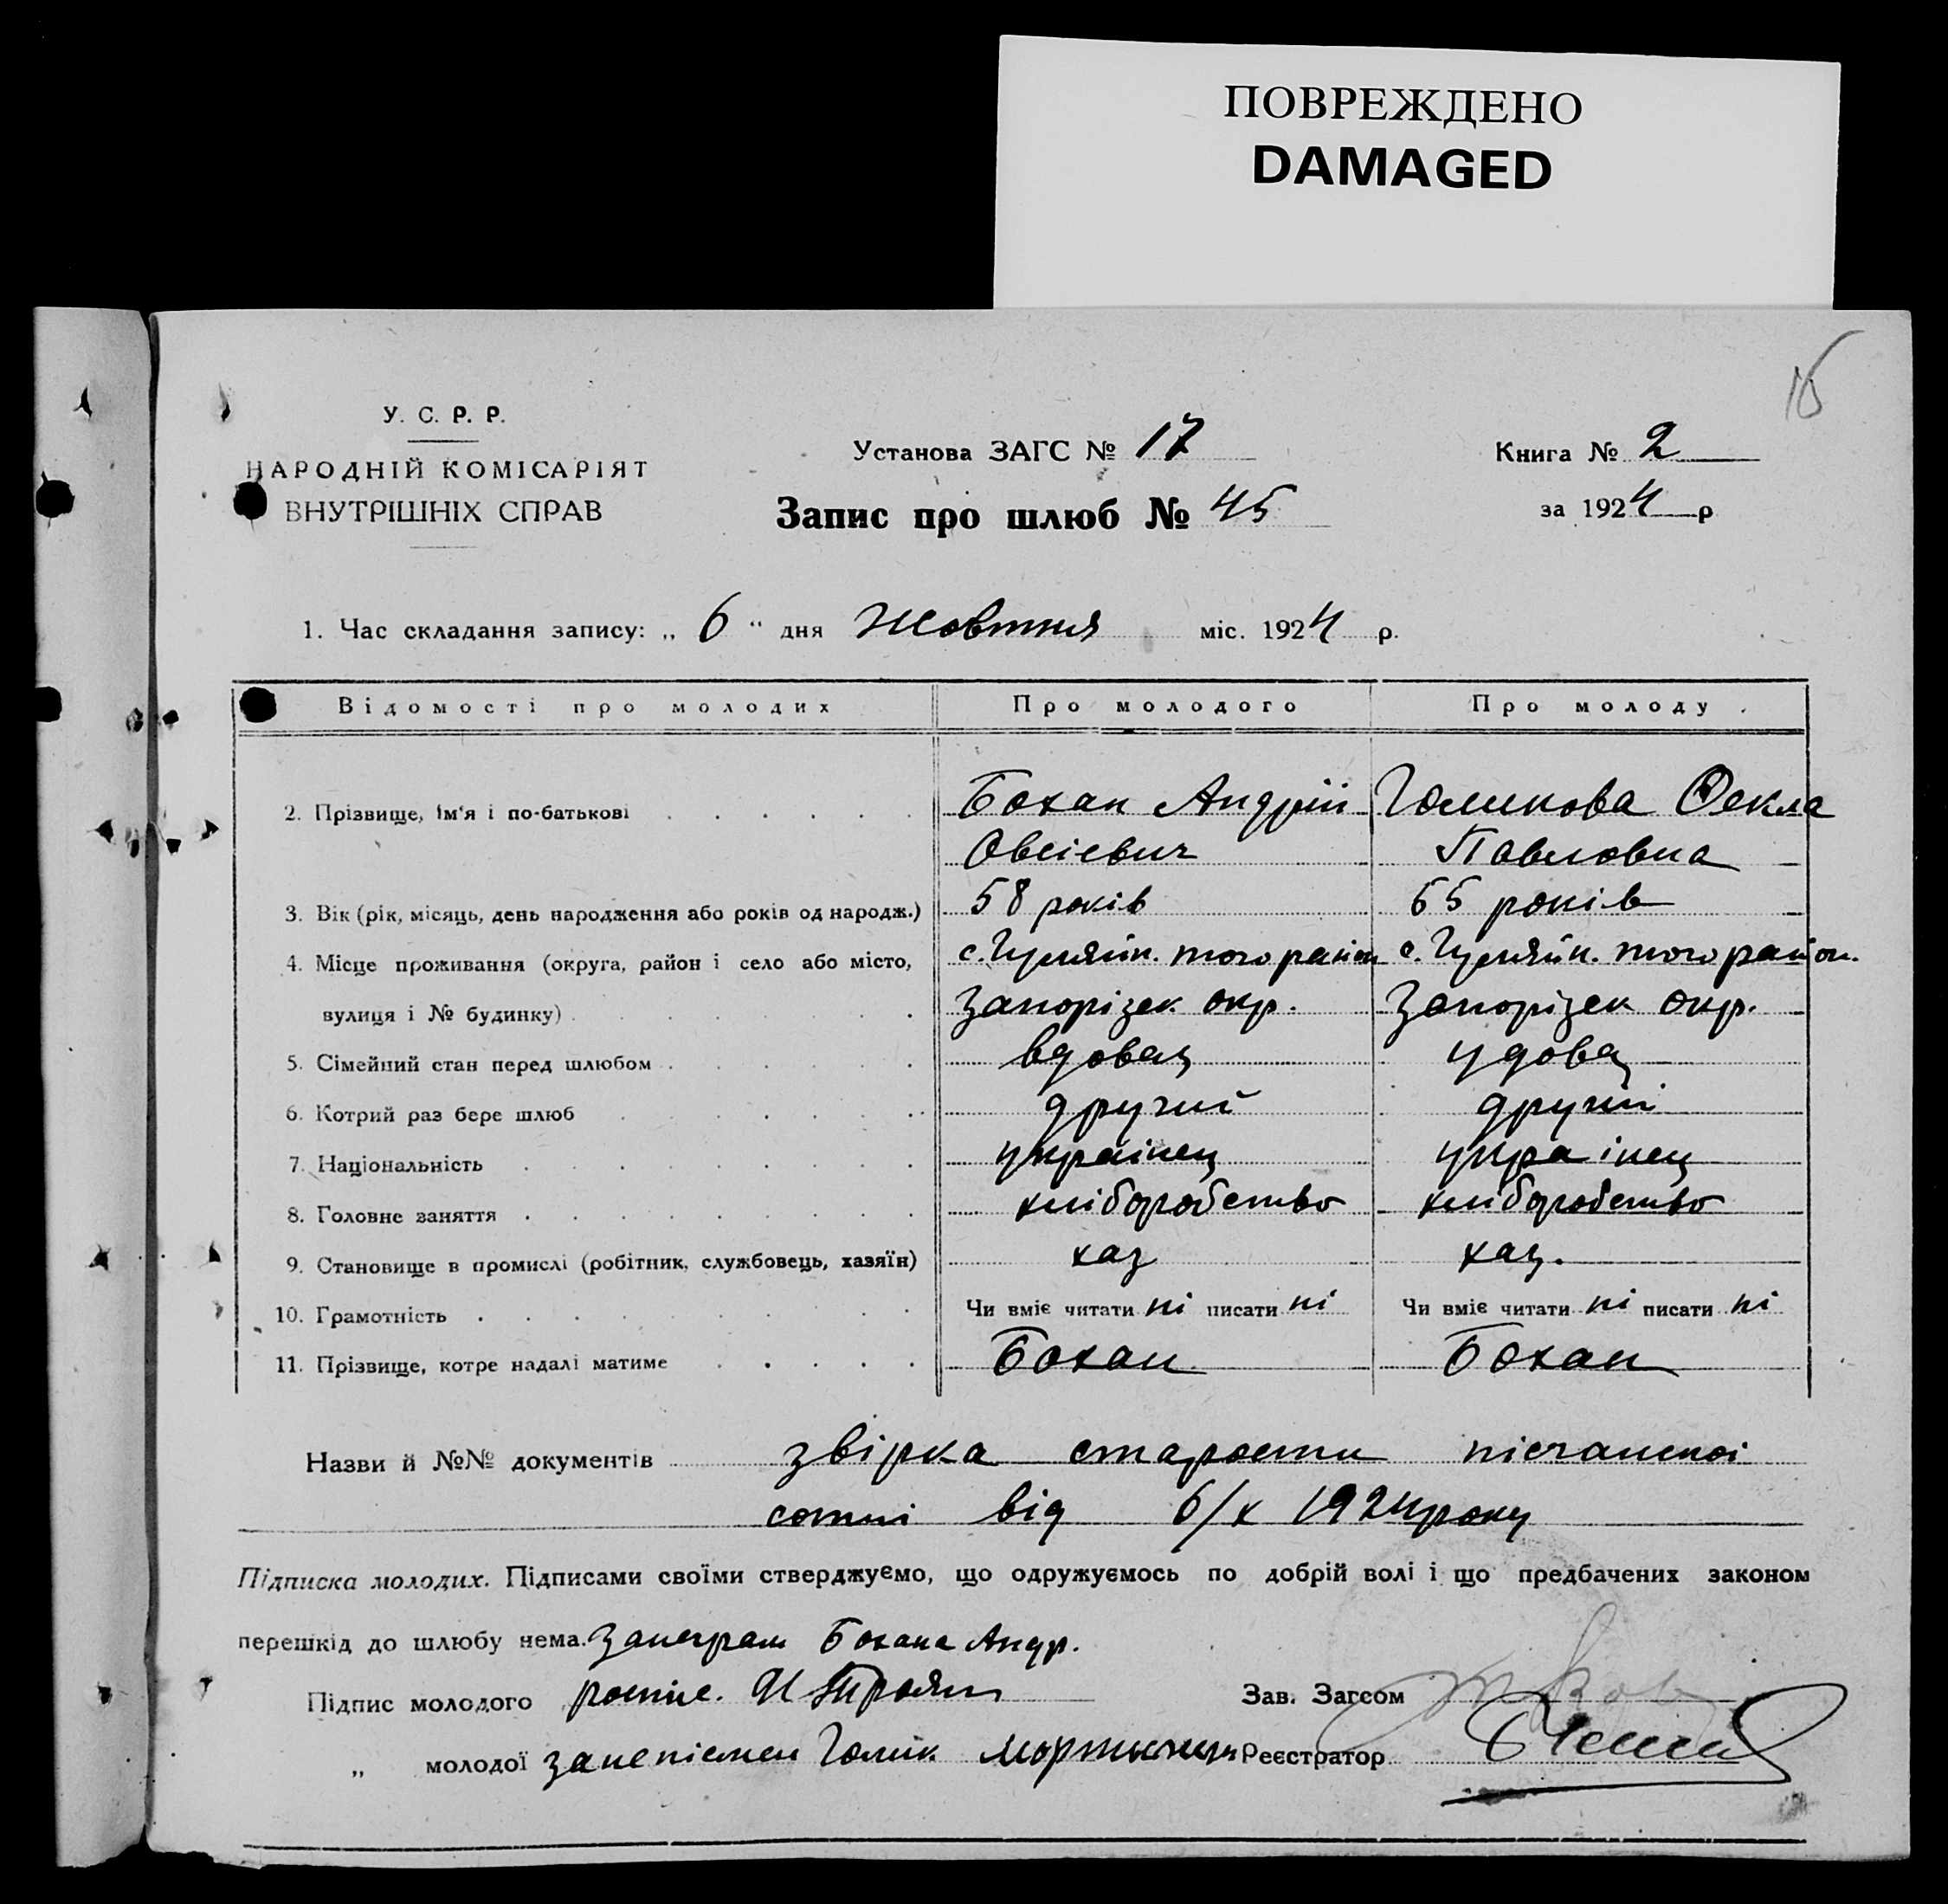 ПОВРЕЖДЕНО
DAMAGED
15
У. С. Р. Р.
НАРОДНІЙ КОМІСАРІЯТ
ВНУТРІШНІХ СПРАВ
Установа ЗАГС № 17
Запис про шлюб № 45
Книга № 2
за 1924 р
1. Час складання запису: „ 6 “ дня Жовтня міс. 1924 р.
Відомості про молодих Про молодого Про молоду
2. Прізвище, ім'я і по-батькові Бохан Андрій Голикова Фекла
Овсієвич Павловна
3. Вік (рік, місяць, день народження або років од народж.) 58 років 55 років
4. Місце проживання (округа, район і село або місто, с. того район с. того район.
вулиця і № будинку) Запорізск. окр. Запорізск окр.
5. Сімейний стан перед шлюбом вдовец удова
6. Котрий раз бере шлюб другий другий
7. Національність украінец украінец
8. Головне заняття хліборобство хліборобство
9. Становище в промислі (робітник, службовець, хазяїн) хаз хаз.
10. Грамотність Чи вміє читати ні писати ні Чи вміє читати ні писати ні
11. Прізвище, котре надалі матиме Бохан Бохан
Назви й №№ документів звірка старости пісчанскоі
сотні від 6/х 1924 року
Підписка молодих. Підписами своїми стверджуємо, що одружуємось по добрій волі і що предбачених законом
перешкід до шлюбу нема. Бохана Андр.
Підпис молодого роспис. И Троян
Зав. Загсом
„ молодої Голик
Реєстратор